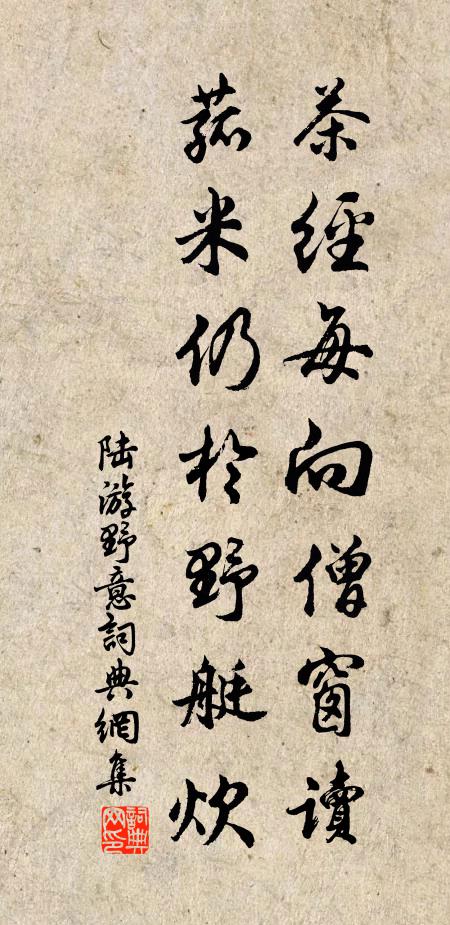 茶經每向僧窗讀
菰米仍於野艇炊
陆游野意詞典網集
詞典網印